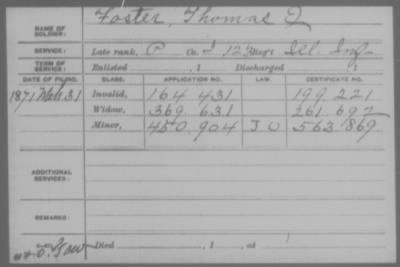 NAME OF SOLDIER: Foster, Thomas J
SERVICE: Late rank, P Co. I 123 Reg't Ill. Inf.
TERM OF SERVICE: Enlisted , 1 Discharged , 1
DATE OF FILING. CLASS. APPLICATION NO. LAW. CERTIFICATE NO.
1871 Mch 31 Invalid, 164 431 199 221
Widow, 369 631 261 692
Minor, 450 904 J O 563 869
ADDITIONAL SERVICES:
REMARKS:
Died , 1 , at